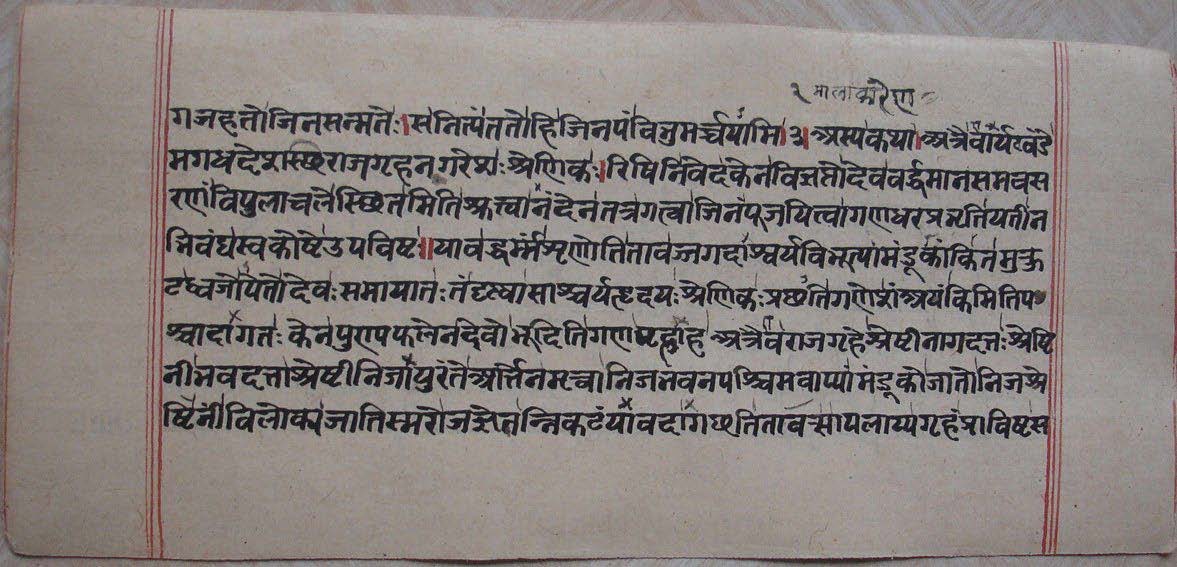 २ मालाकारेण
गजहतो जिनसन्मतेः। सनित्यं ततो हि जिनपं विभुमर्च्चयामि। ३। अस्य कथा। अत्रैवार्यखंडे
मगधदेशस्छिराजगृहनगरेशः श्रेणिकः। रिषिनिवेदकेन विज्ञप्तो देव वर्द्धमानसमवस
रणं विपुलाचले स्छितमिति श्रुत्वानंदेन तत्र गत्वा जिनं पूजयित्वा गणधरप्रभृतियतीन
भिवंद्य स्वकोष्टे उपविष्टः॥ यावद्धर्मं शृणोति तावज्जगदाश्चर्यविभूत्या मंडूकांकितमुकु
टध्वजोपेतो देवः समायातः तं दृष्ट्वा साश्चर्यहृदयः श्रेणिकः प्रछति गणेशं अयं किमिति प
श्चादागतः केन पुण्यफलेन देवो भूदिति गणभृद्गाह अत्रैव राजगृहे श्रेष्टी नागदत्तः श्रेष्टि
नी भवदत्ता श्रेष्टी निजायुरंते अर्त्तेन मृत्वा निजभवनपश्चिमवाप्यां मंडूको जातो निजश्रे
ष्टिनीं विलोक्य जातिस्मरो जज्ञे तन्निकटं यावदागछति तावत्सा पलाय्य गृहं प्राविष्टा स